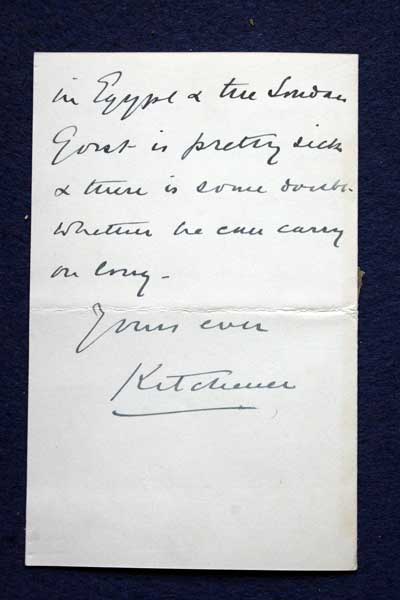 in Egypt & the Soudan
Gorst is pretty sick
& there is some doubt
whether he can carry
on long -
Yours ever
Kitchener